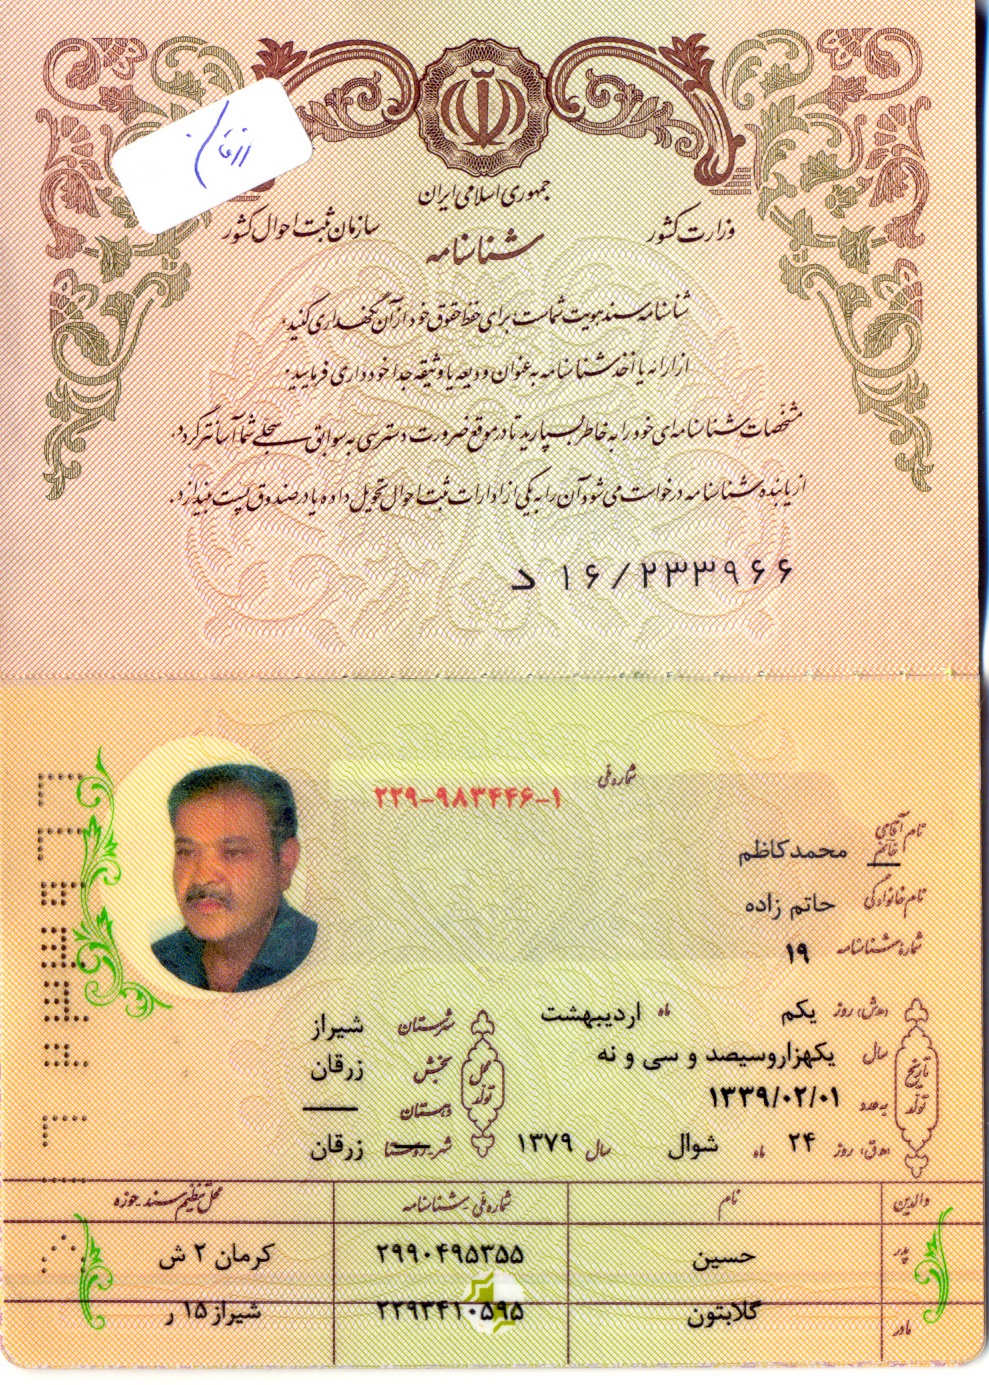 زرقان
جمهوری اسلامی ایران
وزارت کشور
سازمان ثبت احوال کشور
شناسنامه
شناسنامه سند هویت شماست برای حفظ حقوق خود از آن نگهداری کنید.
از ارائه یا اخذ شناسنامه به عنوان ودیعه یا وثیقه جدا خودداری فرمایید.
مشخصات شناسنامه‌ای خود را به خاطر بسپارید تا در موقع ضرورت دسترسی به سوابق سجلی شما آسانتر گردد.
از یابنده شناسنامه درخواست می‌شود آن را به یکی از ادارات ثبت احوال تحویل داده یا در صندوق پست بیندازد.
د ۱۶/۲۳۳۹۶۶
شماره ملی ۲۲۹-۹۸۳۴۴۶-۱
نام آقای خانم محمدکاظم
نام خانوادگی حاتم زاده
شماره شناسنامه ۱۹
تاریخ تولد
(ه‍.ش) روز یکم ماه اردیبهشت
سال یکهزاروسیصد و سی و نه
به عدد ۱۳۳۹/۰۲/۰۱
(ه‍.ق) روز ۲۴ ماه شوال سال ۱۳۷۹
محل تولد
شهرستان شیراز
بخش زرقان
دهستان ——
شهر روستا زرقان
والدین نام شماره ملی-شناسنامه محل تنظیم سند-حوزه
پدر حسین ۲۹۹۰۴۹۵۳۵۵ کرمان ۲ ش
مادر گلابتون ۲۲۹۳۴۱۰۵۹۵ شیراز ۱۵ ر